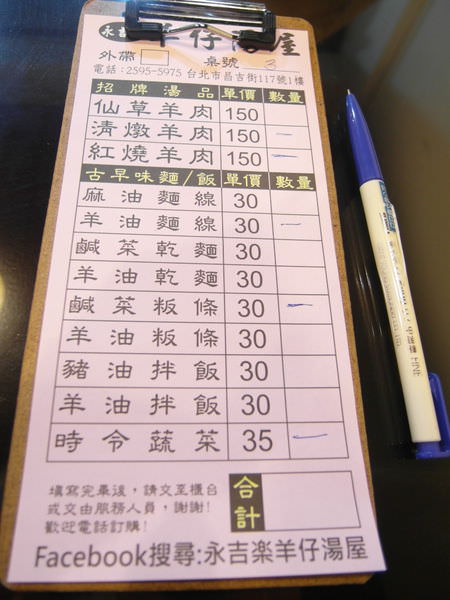 永吉 羊仔湯屋
外帶 桌號 3
電話：2595-5975 台北市昌吉街117號1樓
招牌湯品 單價 數量
仙草羊肉 150
清燉羊肉 150 一
紅燒羊肉 150 一
古早味麵/飯 單價 數量
麻油麵線 30
羊油麵線 30 一
鹹菜乾麵 30
羊油乾麵 30
鹹菜粄條 30 一
羊油粄條 30
豬油拌飯 30
羊油拌飯 30
時令蔬菜 35 一
填寫完畢後，請交至櫃台
或交由服務人員，謝謝!
歡迎電話訂購!
合計
Facebook搜尋:永吉楽羊仔湯屋